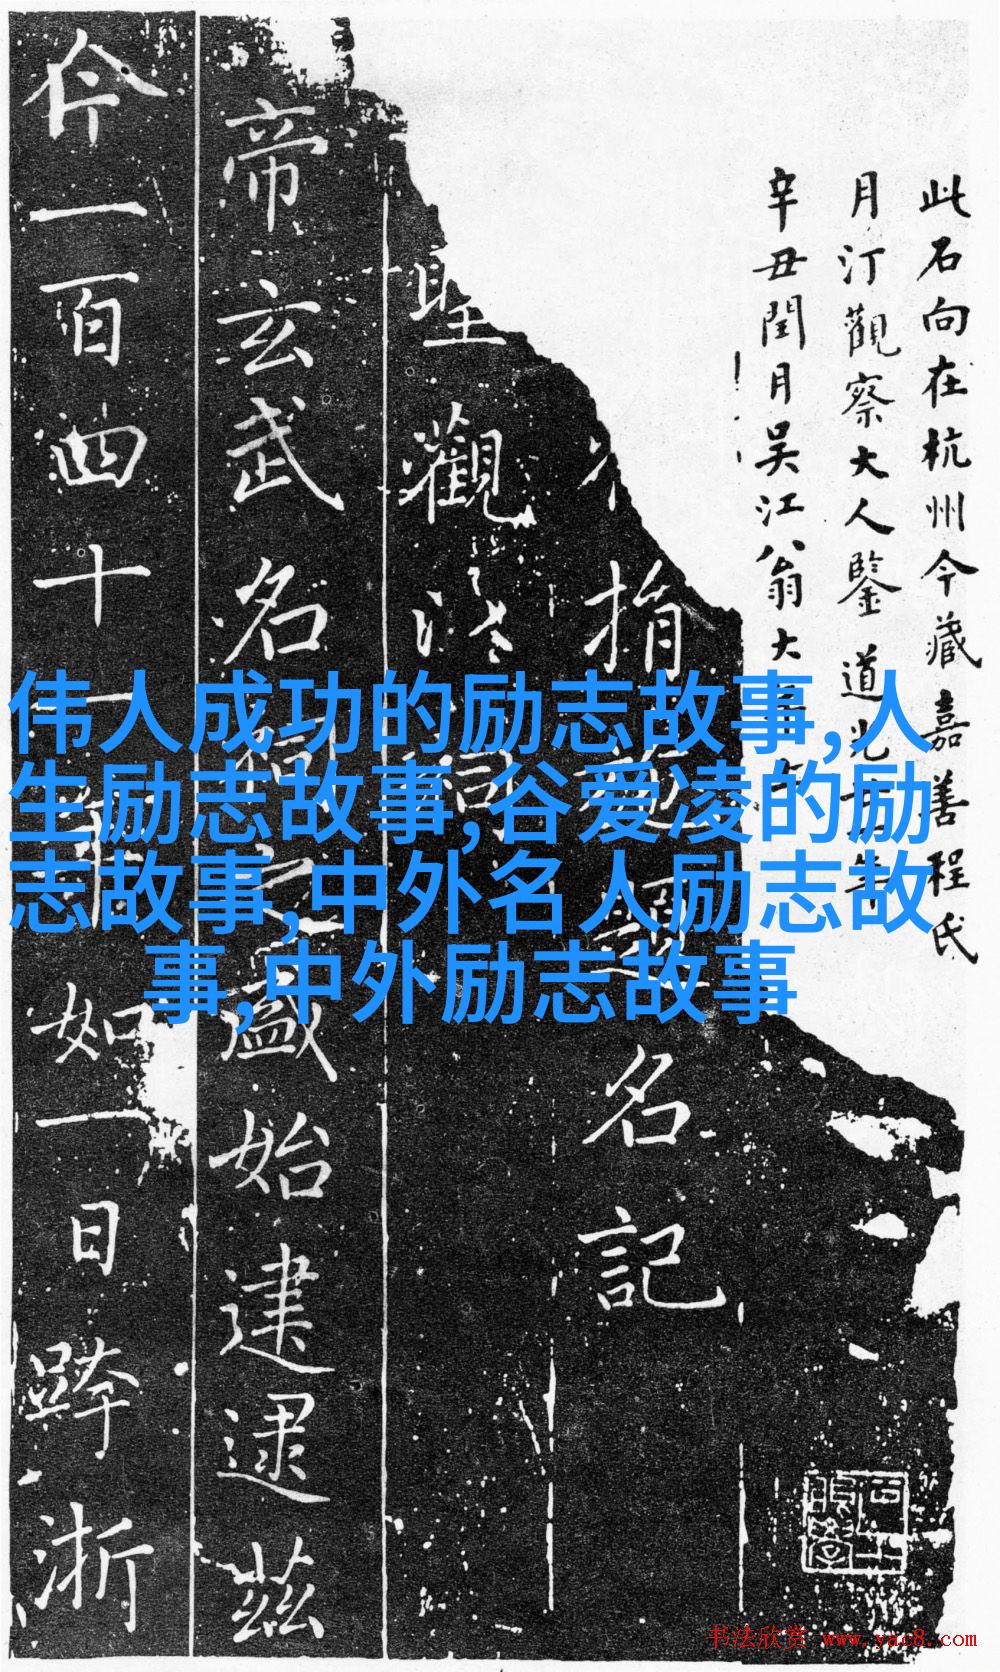 此石向在杭州今藏嘉善程氏
月汀觀察大人鑒道光
辛丑閏月吳江翁大年
指
名記
聖觀
帝玄武名祠之盛始建逮茲
今一百四十
如一日
浙
伟人成功的励志故事,人
生励志故事,谷爱凌的励
志故事,中外名人励志故
事,中外励志故事
书法欣赏 www.yac8.com